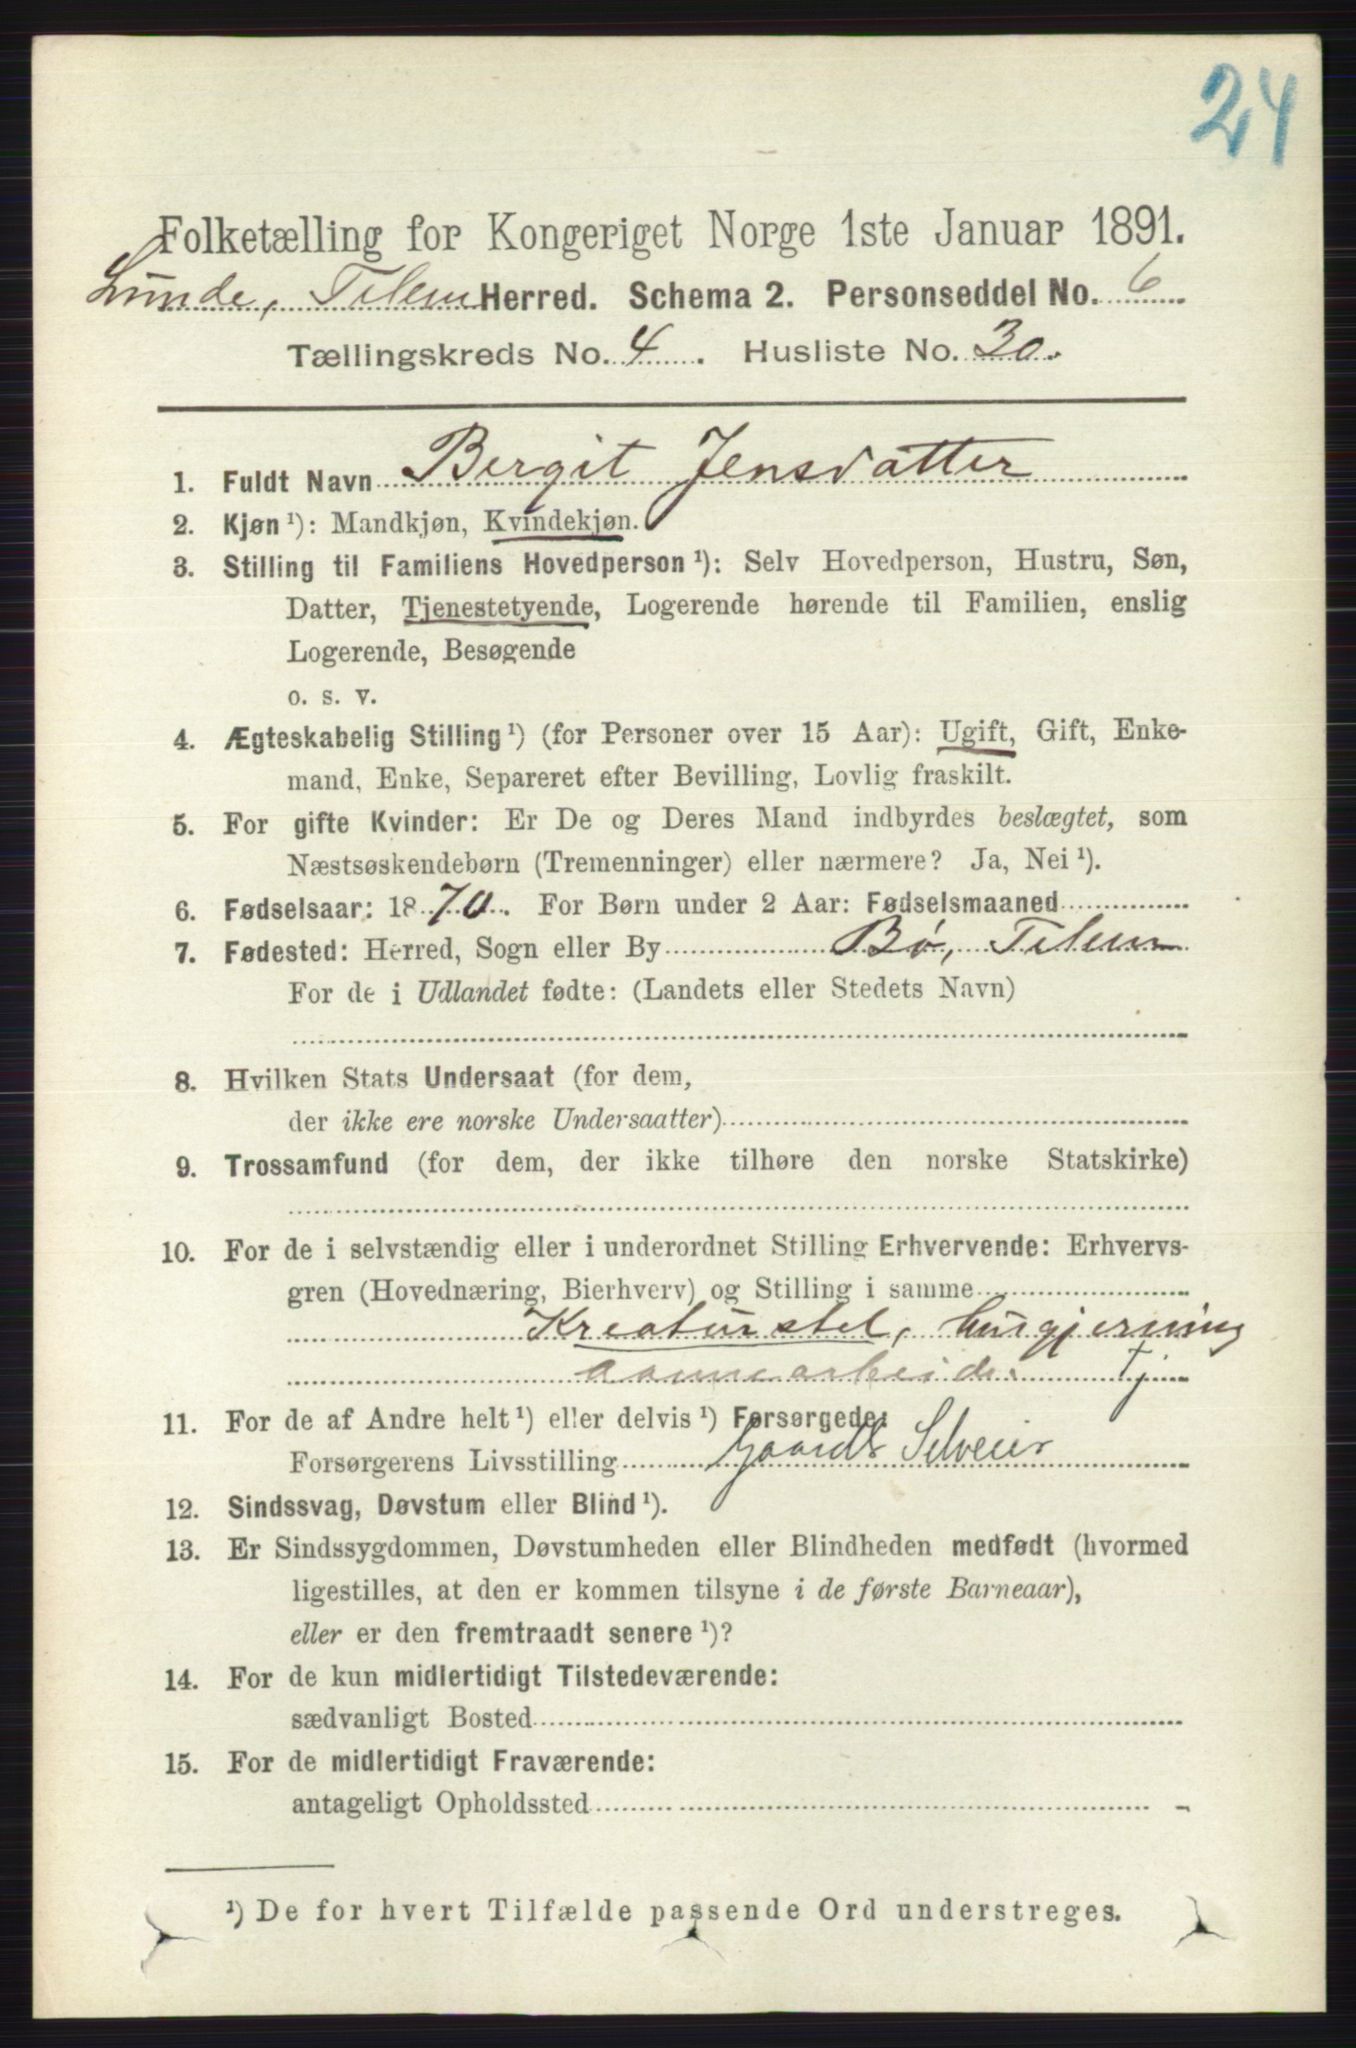 24
Folketælling for Kongeriget Norge 1ste Januar 1891.
Lunde, Telem Herred. Schema 2. Personseddel No. 6
Tællingskreds No. 4. Husliste No. 30.
1. Fuldt Navn Bergit Jensdatter
2. Kjøn ¹): Mandkjøn, Kvindekjøn.
3. Stilling til Familiens Hovedperson ¹): Selv Hovedperson, Hustru, Søn,
Datter, Tjenestetyende, Logerende hørende til Familien, enslig
Logerende, Besøgende
o. s. v.
4. Ægteskabelig Stilling ¹) (for Personer over 15 Aar): Ugift, Gift, Enke-
mand, Enke, Separeret efter Bevilling, Lovlig fraskilt.
5. For gifte Kvinder: Er De og Deres Mand indbyrdes beslægtet, som
Næstsøskendebørn (Tremenninger) eller nærmere? Ja, Nei ¹).
6. Fødselsaar: 1870. For Børn under 2 Aar: Fødselsmaaned
7. Fødested: Herred, Sogn eller By Bø, Telem
For de i Udlandet fødte: (Landets eller Stedets Navn)
8. Hvilken Stats Undersaat (for dem,
der ikke ere norske Undersaatter)
9. Trossamfund (for dem, der ikke tilhøre den norske Statskirke)
10. For de i selvstændig eller i underordnet Stilling Erhvervende: Erhvervs-
gren (Hovednæring, Bierhverv) og Stilling i samme
Kreaturstel, husgjerning
aannearbeide. tj
11. For de af Andre helt ¹) eller delvis ¹) Forsørgede:
Forsørgerens Livsstilling Gaards Selveier
12. Sindssvag, Døvstum eller Blind ¹).
13. Er Sindssygdommen, Døvstumheden eller Blindheden medfødt (hvormed
ligestilles, at den er kommen tilsyne i de første Barneaar),
eller er den fremtraadt senere ¹)?
14. For de kun midlertidigt Tilstedeværende:
sædvanligt Bosted
15. For de midlertidigt Fraværende:
antageligt Opholdssted
¹) De for hvert Tilfælde passende Ord understreges.